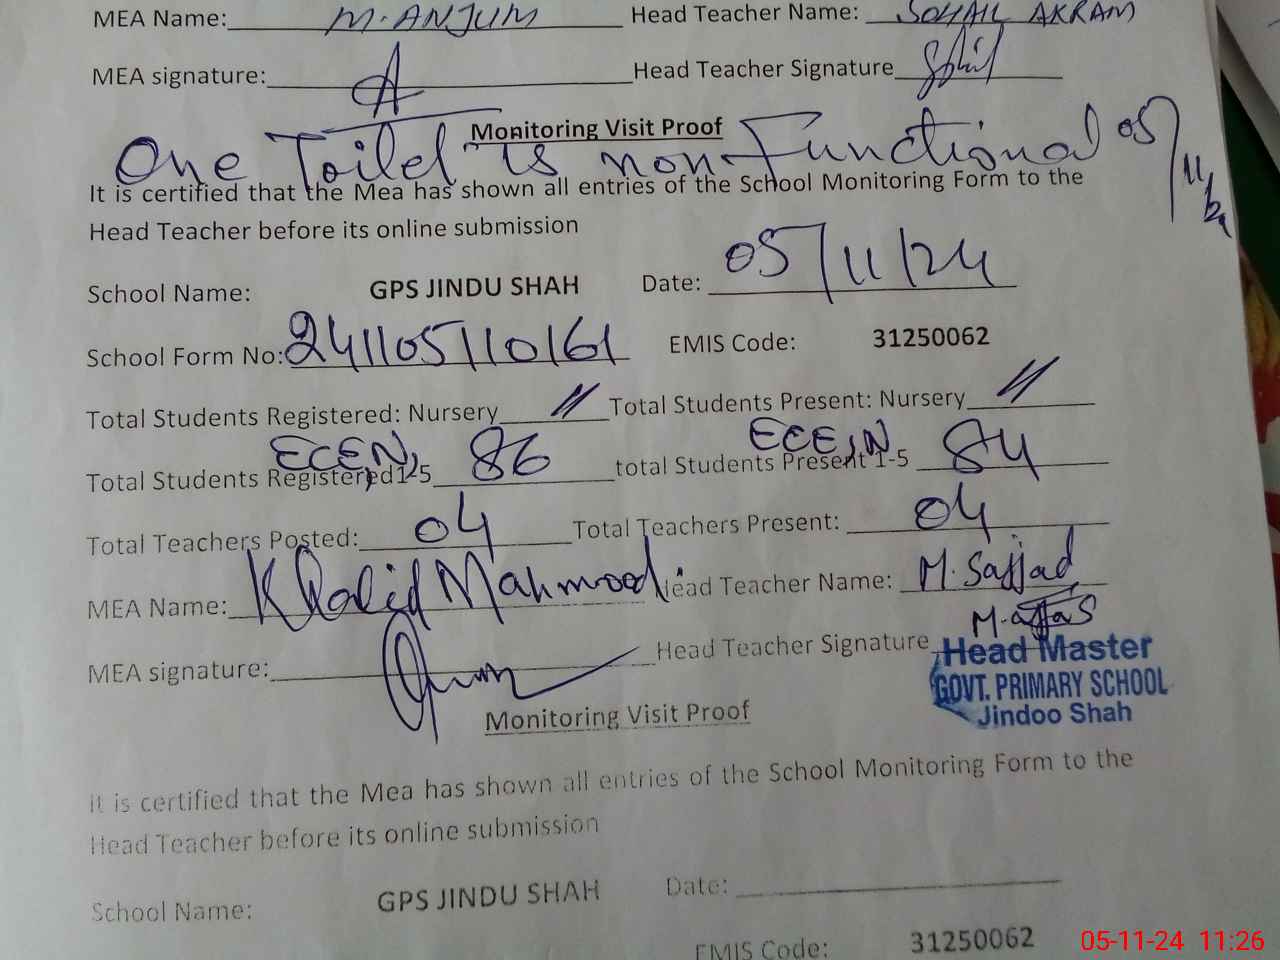 MEA Name: M. ANJUM Head Teacher Name: SOHAIL AKRAM
MEA signature: Head Teacher Signature
Monitoring Visit Proof
One Toilet is non-Functional 05/11/24
It is certified that the Mea has shown all entries of the School Monitoring Form to the
Head Teacher before its online submission
School Name: GPS JINDU SHAH Date: 05/11/24
School Form No: 241105110161 EMIS Code: 31250062
Total Students Registered: Nursery 11 Total Students Present: Nursery 11
ECE,N, ECE,N
Total Students Registered1-5 86 total Students Present 1-5 84
Total Teachers Posted: 04 Total Teachers Present: 04
MEA Name: Khalid Mahmood Head Teacher Name: M. Sajjad
MEA signature: Head Teacher Signature
Head Master
GOVT. PRIMARY SCHOOL
Jindoo Shah
Monitoring Visit Proof
It is certified that the Mea has shown all entries of the School Monitoring Form to the
Head Teacher before its online submission
School Name: GPS JINDU SHAH Date:
EMIS Code: 31250062
05-11-24 11:26